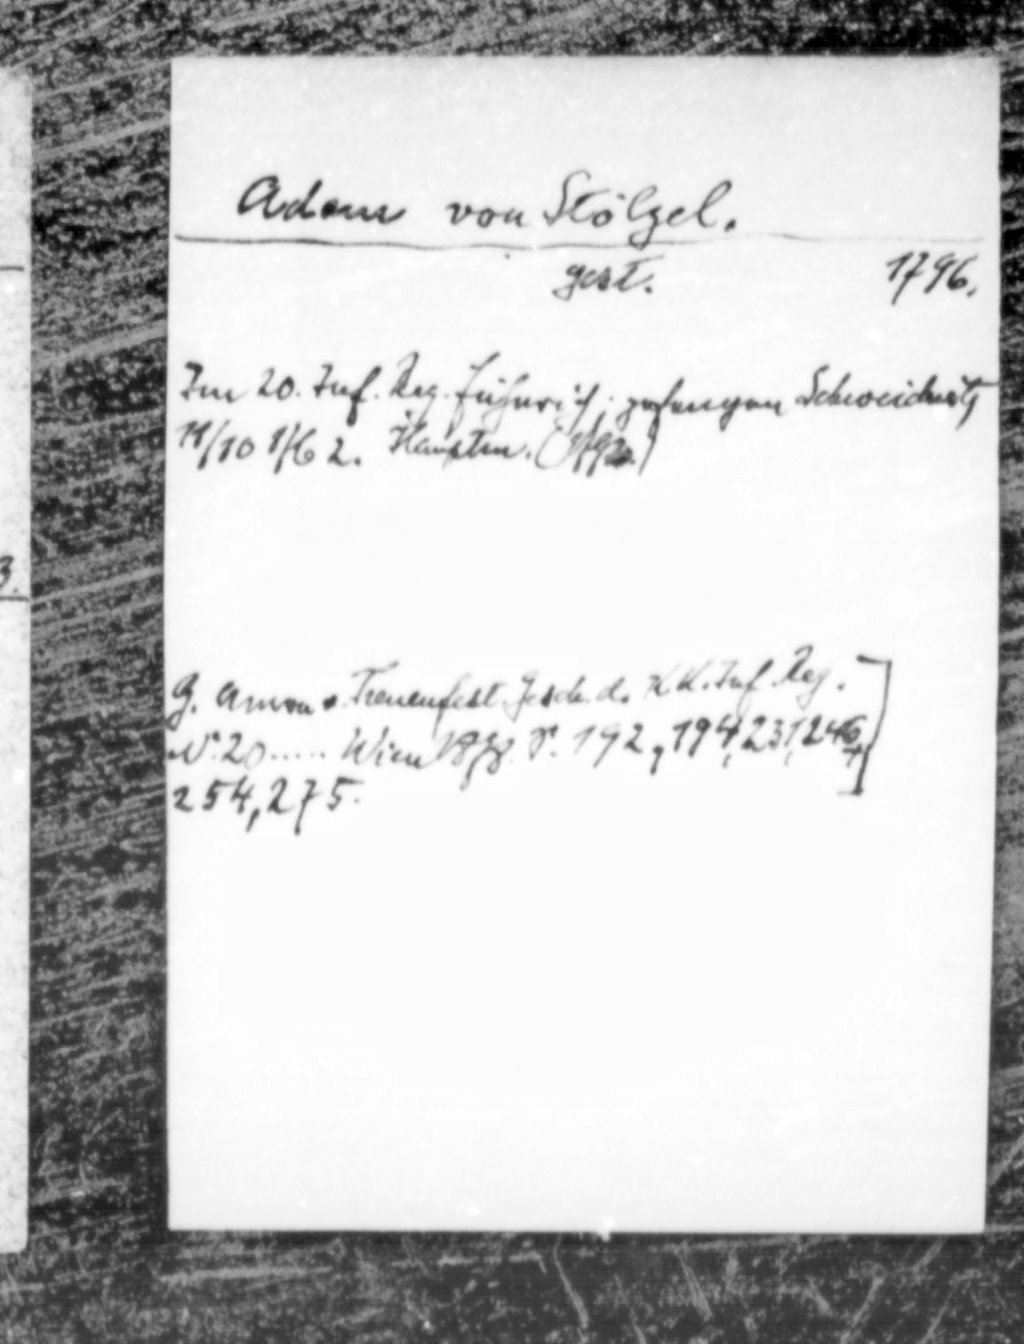 Adam von Stölzel.
gest. 1796.
Im 20. Inf. Reg. Fähnrich; gefangen Schweidnitz
11/10 1762. Hauptm.
G. Amon v. Treuenfest. Gesch. d. K.K. Inf. Reg.
N° 20 ..... Wien S. 192, 194, 231, 246,
254, 275.
3.